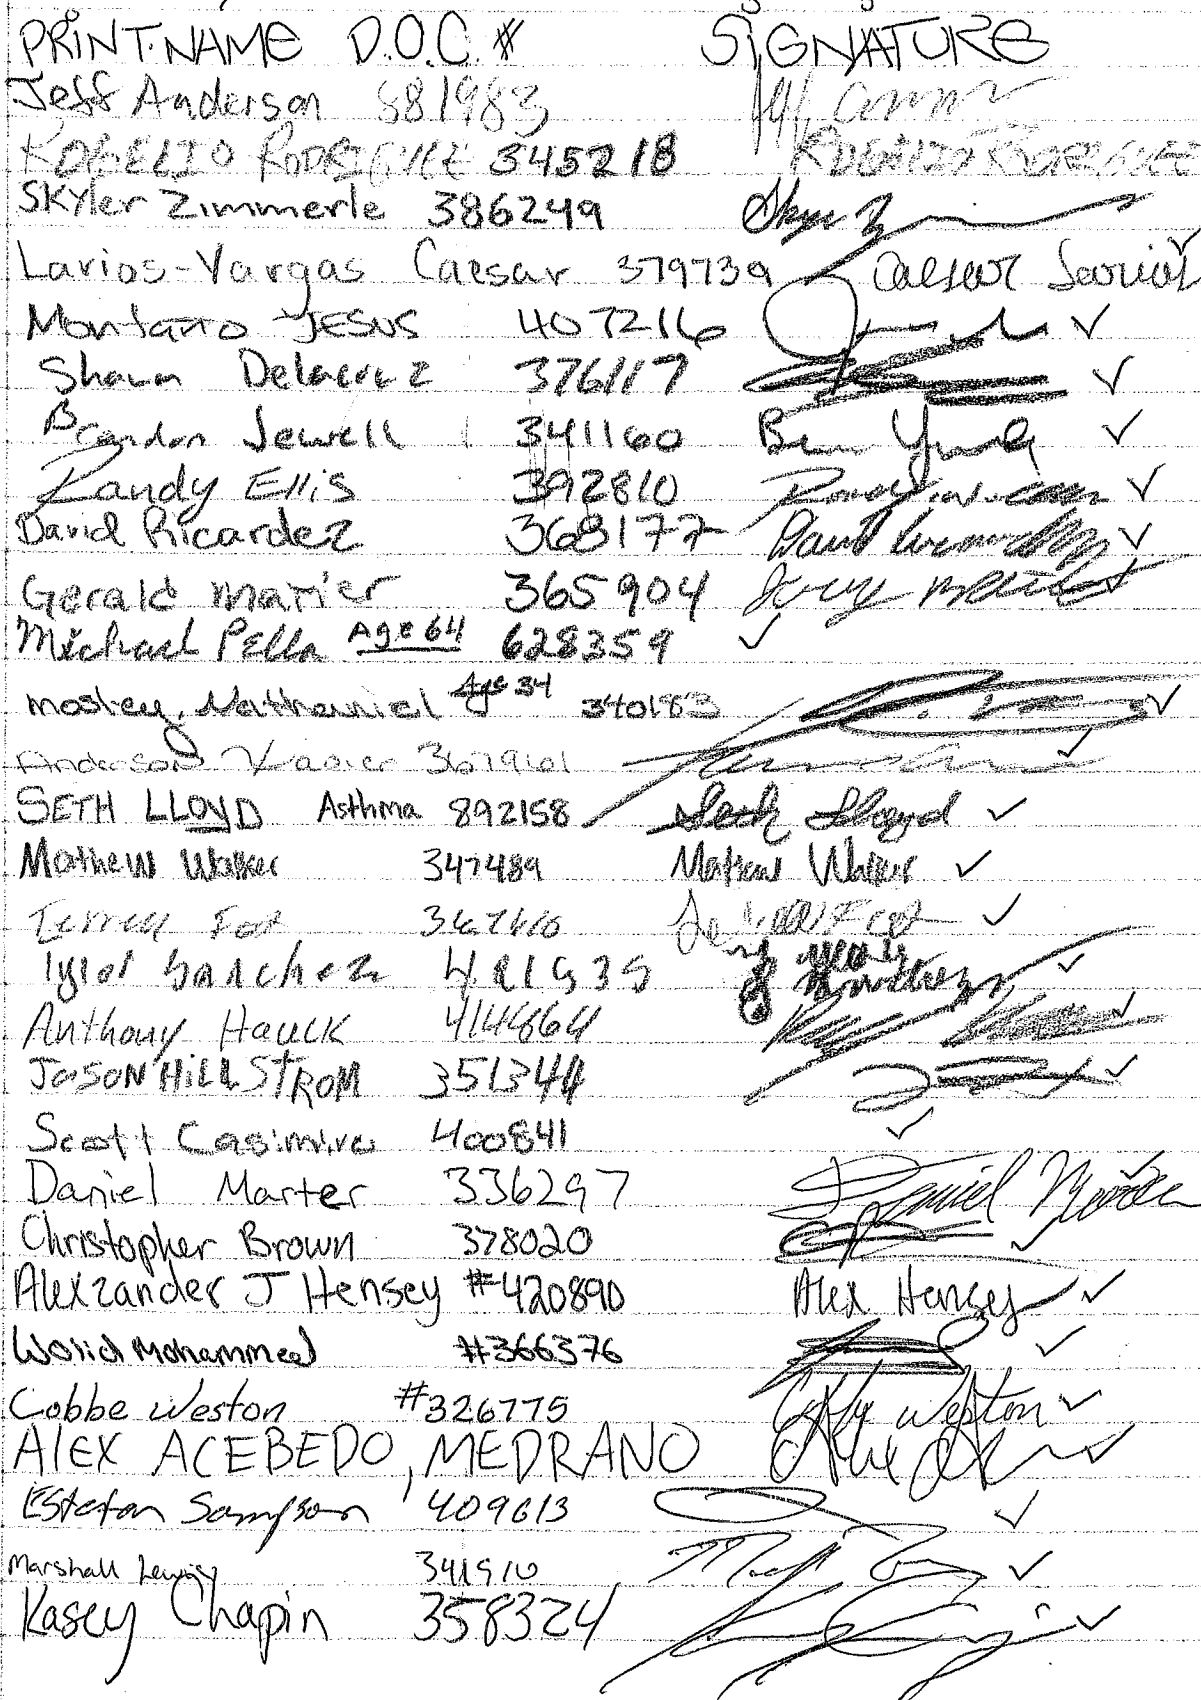 PRINT NAME D.O.C. # SIGNATURE
Jeff Anderson 881983
ROGELIO RODRIGUEZ 345218 ROGELIO RODRIGUEZ
SKYler Zimmerle 386249
Larios-Vargas Caesar 379739 Caesar Larios
Montaño JESUS 407216 ✓
Shawn Delacruz 376117 ✓
Brandon Jewell 341160 ✓
Randy Ellis 392810 ✓
David Ricardez 368177 David ✓
Gerald Matier 365904
Michael Pella Age 64 628359 ✓
Mosley, Nathaniel Age 34 340183 ✓
Anderson Xavier 367961 ✓
SETH LLOYD Asthma 892158 Seth Lloyd ✓
Mathew Walker 347489 Mathew Walker ✓
Terrell Fox ✓
Sanchez ✓
Anthony Hauck 414864 ✓
JASON HILLSTROM 351344 ✓
Scott Casimiro 400841 ✓
Daniel Marter 336297 Daniel ✓
Christopher Brown 378020 ✓
Alexzander J Hensey #420890 Alex Hensey ✓
Walid Mohammed #366376 ✓
Cobbe Weston #326775 Cobbe Weston ✓
ALEX ACEBEDO, MEDRANO Alex ✓
Estefan Sampson 409613 ✓
Marshall Lewis 341910 ✓
Kasey Chapin 358324 ✓